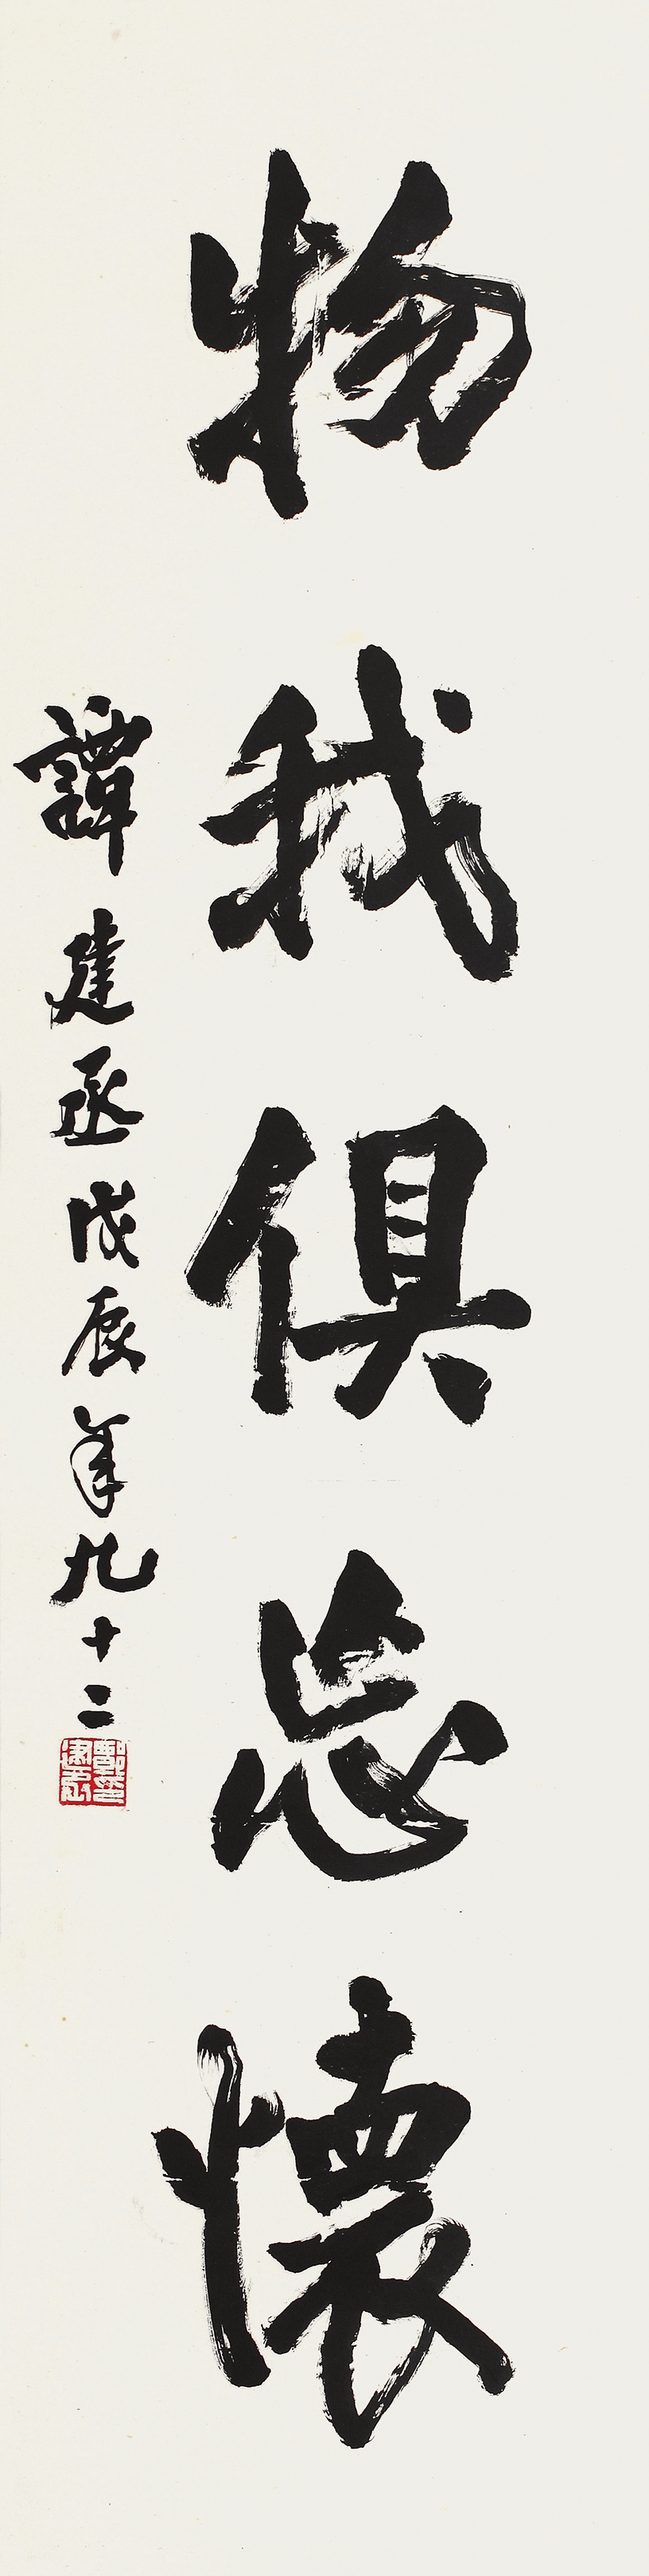 物我俱忘懷
譚建丞戊辰年九十二